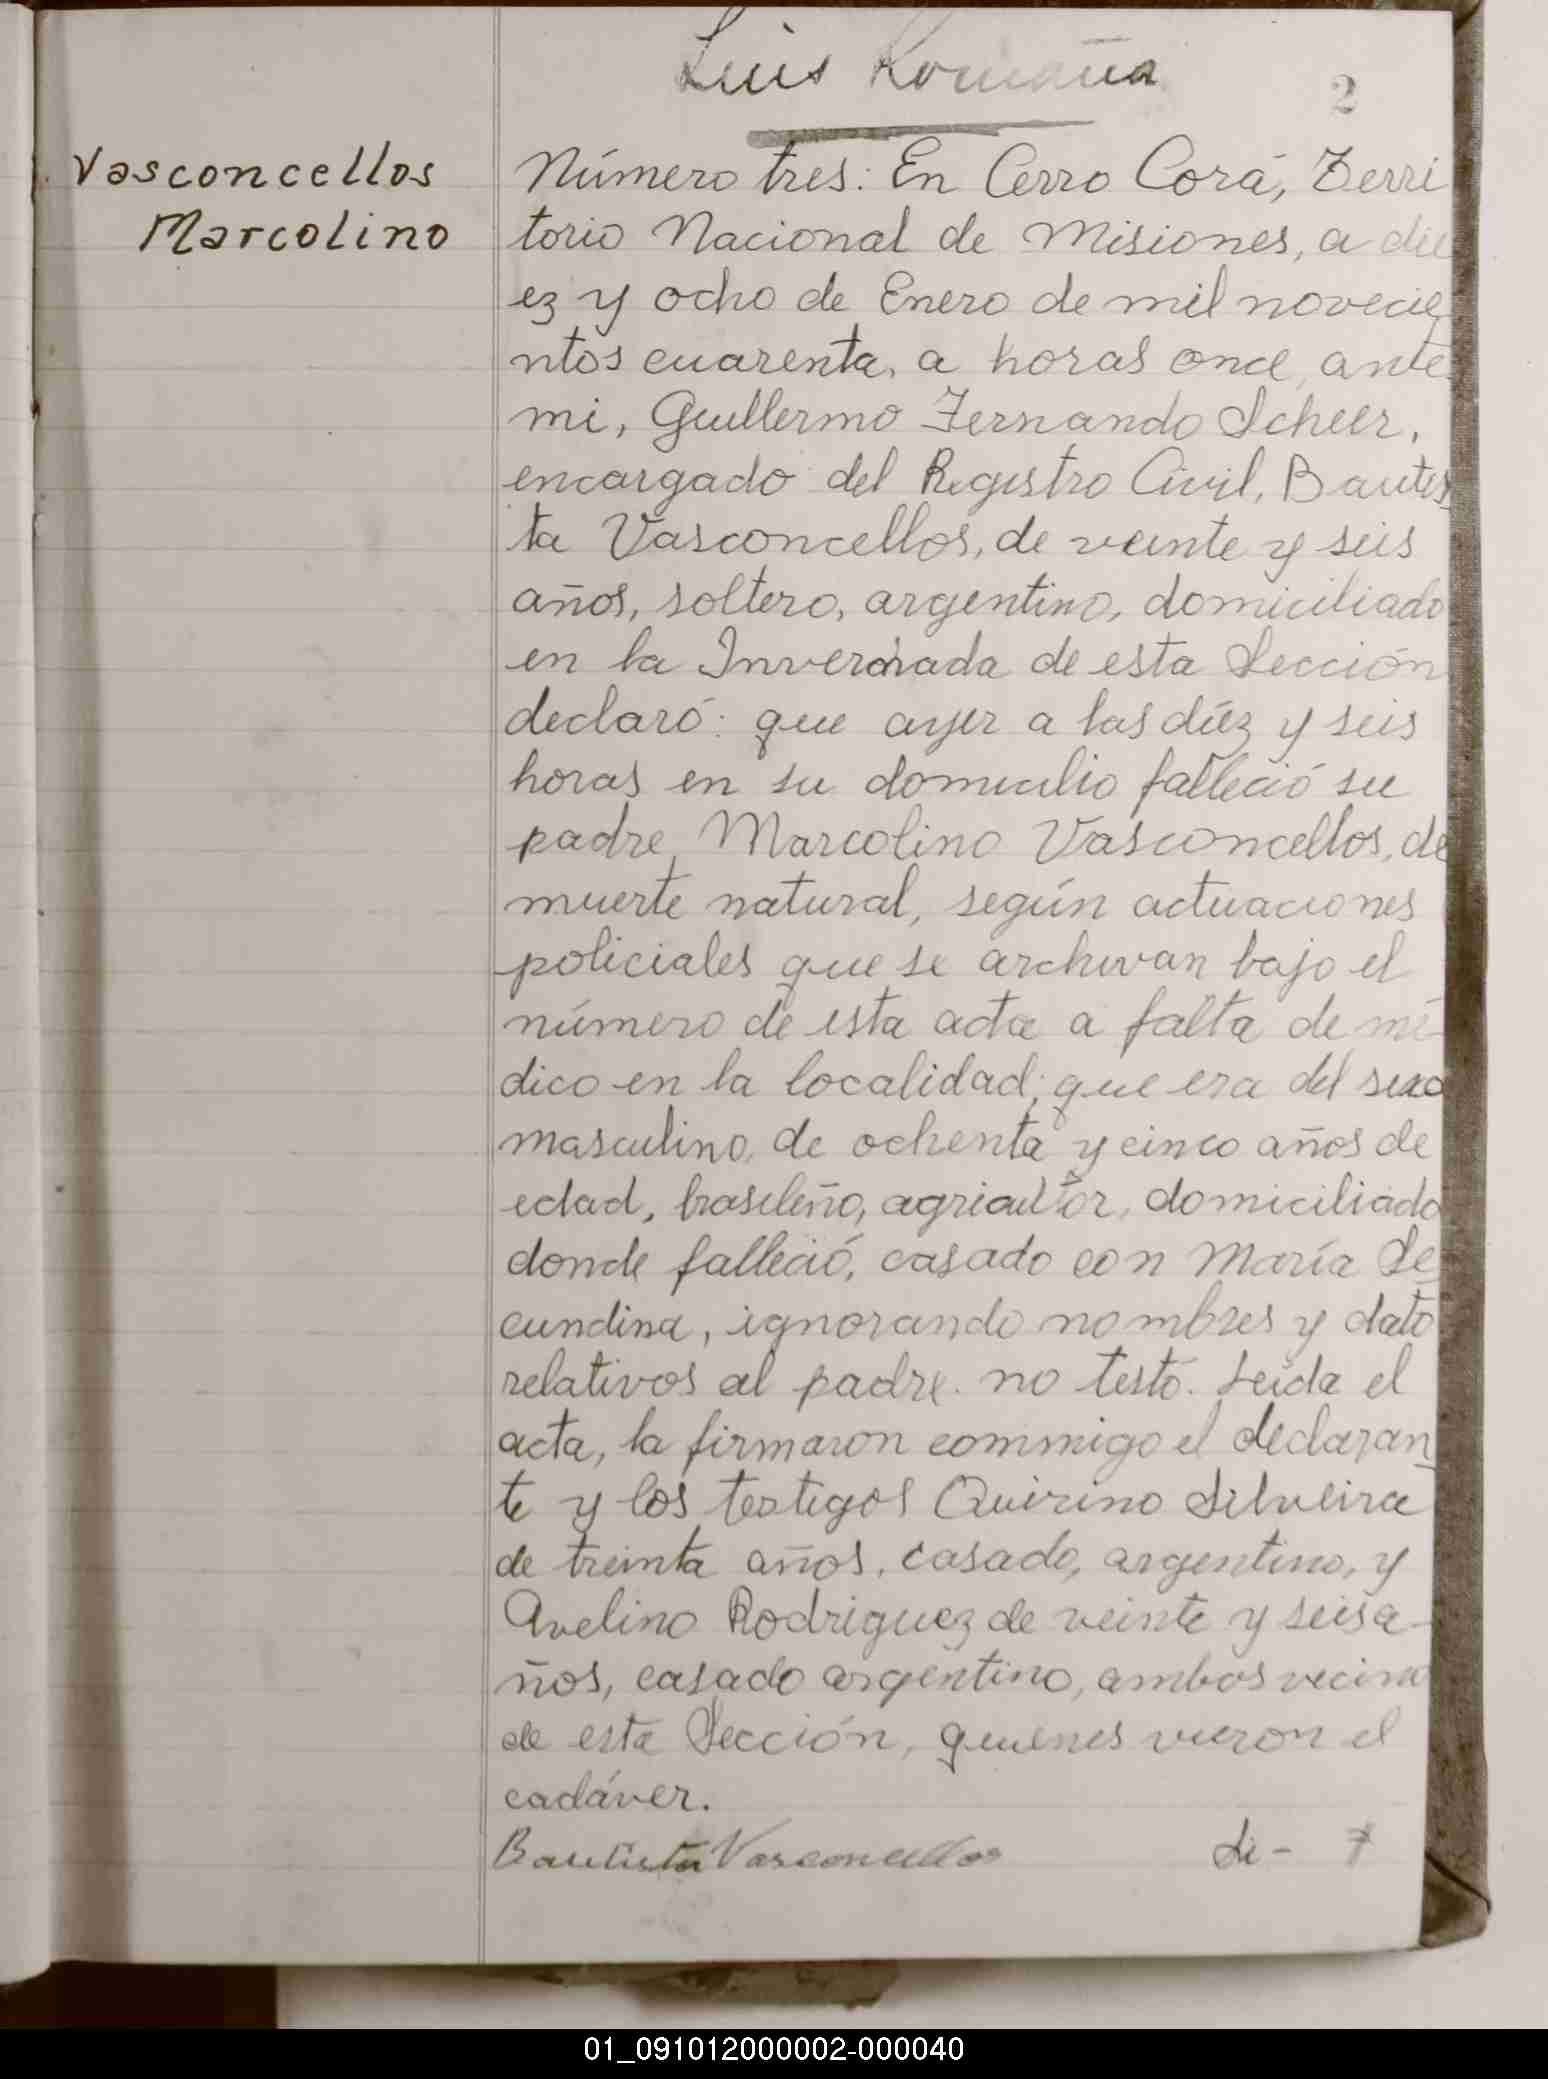 Luis Romaña
2
Vasconcellos
Marcolino
Número tres: En Cerro Corá, Terri
torio Nacional de Misiones, a di
ez y ocho de Enero de mil novecie
ntos cuarenta, a horas once, ante
mi, Guillermo Fernando Scheer,
encargado del Registro Civil, Bautis
ta Vasconcellos, de veinte y seis
años, soltero, argentino, domiciliado
en la Invernada de esta Sección
declaró: que ayer a las diéz y seis
horas en su domicilio falleció su
padre, Marcolino Vasconcellos, de
muerte natural, según actuaciones
policiales que se archivan bajo el
número de esta acta a falta de mé-
dico en la localidad; que era del sexo
masculino, de ochenta y cinco años de
edad, brasileño, agricultor, domiciliado
donde falleció, casado con María Se
cundina, ignorando nombres y dato
relativos al padre. no testó. Leída el
acta, la firmaron commigo el declaran
te y los testigos Quirino Silveira
de treinta años, casado, argentino, y
Avelino Rodriguez de veinte y seis a-
ños, casado argentino, ambos vecino
de esta Sección, quienes vieron el
cadáver.
Bautista Vasconcellos
01_091012000002-000040